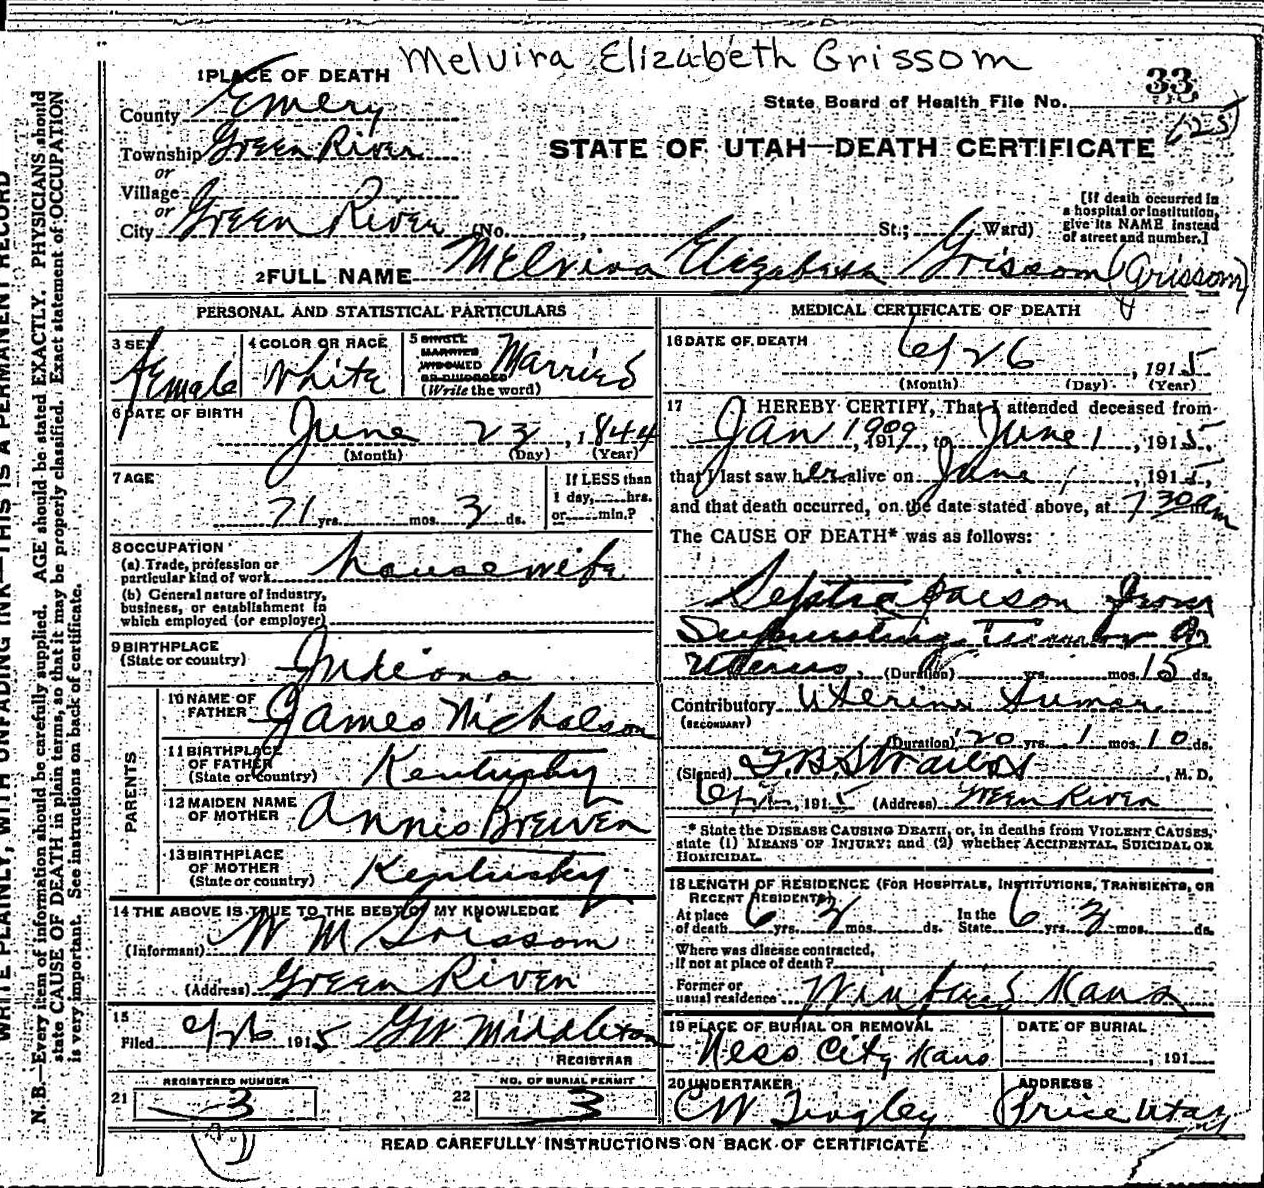 Melvira Elizabeth Grissom
1 PLACE OF DEATH
33
County Emery
State Board of Health File No.
125
Township Green River
STATE OF UTAH—DEATH CERTIFICATE
or
Village
or
City Green River (No. , St.; Ward)
[If death occurred in
a hospital or institution,
give its NAME instead
of street and number.]
2 FULL NAME Melvira Elizabeth Grissom (Grissom)
PERSONAL AND STATISTICAL PARTICULARS
3 SEX Female
4 COLOR OR RACE White
5 SINGLE
MARRIED
WIDOWED
OR DIVORCED
(Write the word) Married
6 DATE OF BIRTH
June 23, 1844
(Month) (Day) (Year)
7 AGE
71 yrs. mos. 3 ds.
If LESS than
1 day, hrs.
or min.?
8 OCCUPATION
(a) Trade, profession or
particular kind of work housewife
(b) General nature of industry,
business, or establishment in
which employed (or employer)
9 BIRTHPLACE
(State or country) Indiana
PARENTS
10 NAME OF
FATHER James Nicholson
11 BIRTHPLACE
OF FATHER
(State or country) Kentucky
12 MAIDEN NAME
OF MOTHER Annis
13 BIRTHPLACE
OF MOTHER
(State or country) Kentucky
14 THE ABOVE IS TRUE TO THE BEST OF MY KNOWLEDGE
(Informant) W M Grissom
(Address) Green River
15
Filed 6/26 1915 GW Middleton
REGISTRAR
21 REGISTERED NUMBER 3
22 NO. OF BURIAL PERMIT 3
MEDICAL CERTIFICATE OF DEATH
16 DATE OF DEATH
6/26, 1915
(Month) (Day) (Year)
17 I HEREBY CERTIFY, That I attended deceased from
Jan 1909, 191 , to June 1, 1915,
that I last saw her alive on June 1, 1915,
and that death occurred, on the date stated above, at 7 30 am
The CAUSE OF DEATH* was as follows:
Poison from
Tumor
Uterus (Duration) yrs. mos. 15 ds.
Contributory Uterine tumor
(SECONDARY)
(Duration) 20 yrs. 1 mos. 10 ds.
(Signed) , M. D.
, 1915 (Address) Green River
* State the DISEASE CAUSING DEATH, or, in deaths from VIOLENT CAUSES,
state (1) MEANS OF INJURY; and (2) whether ACCIDENTAL, SUICIDAL OR
HOMICIDAL.
18 LENGTH OF RESIDENCE (FOR HOSPITALS, INSTITUTIONS, TRANSIENTS, OR
RECENT RESIDENTS)
At place
of death 6 yrs. 3 mos. ds.
In the
State 6 yrs. 3 mos. ds.
Where was disease contracted,
If not at place of death?
Former or
usual residence Kans
19 PLACE OF BURIAL OR REMOVAL
Ness City Kans
DATE OF BURIAL
, 191
20 UNDERTAKER
CW
ADDRESS
Price Utah
READ CAREFULLY INSTRUCTIONS ON BACK OF CERTIFICATE
WRITE PLAINLY, WITH UNFADING INK—THIS IS A PERMANENT RECORD
N. B.—Every item of information should be carefully supplied. AGE should be stated EXACTLY. PHYSICIANS should
state CAUSE OF DEATH in plain terms, so that it may be properly classified. Exact statement of OCCUPATION
is very important. See instructions on back of certificate.